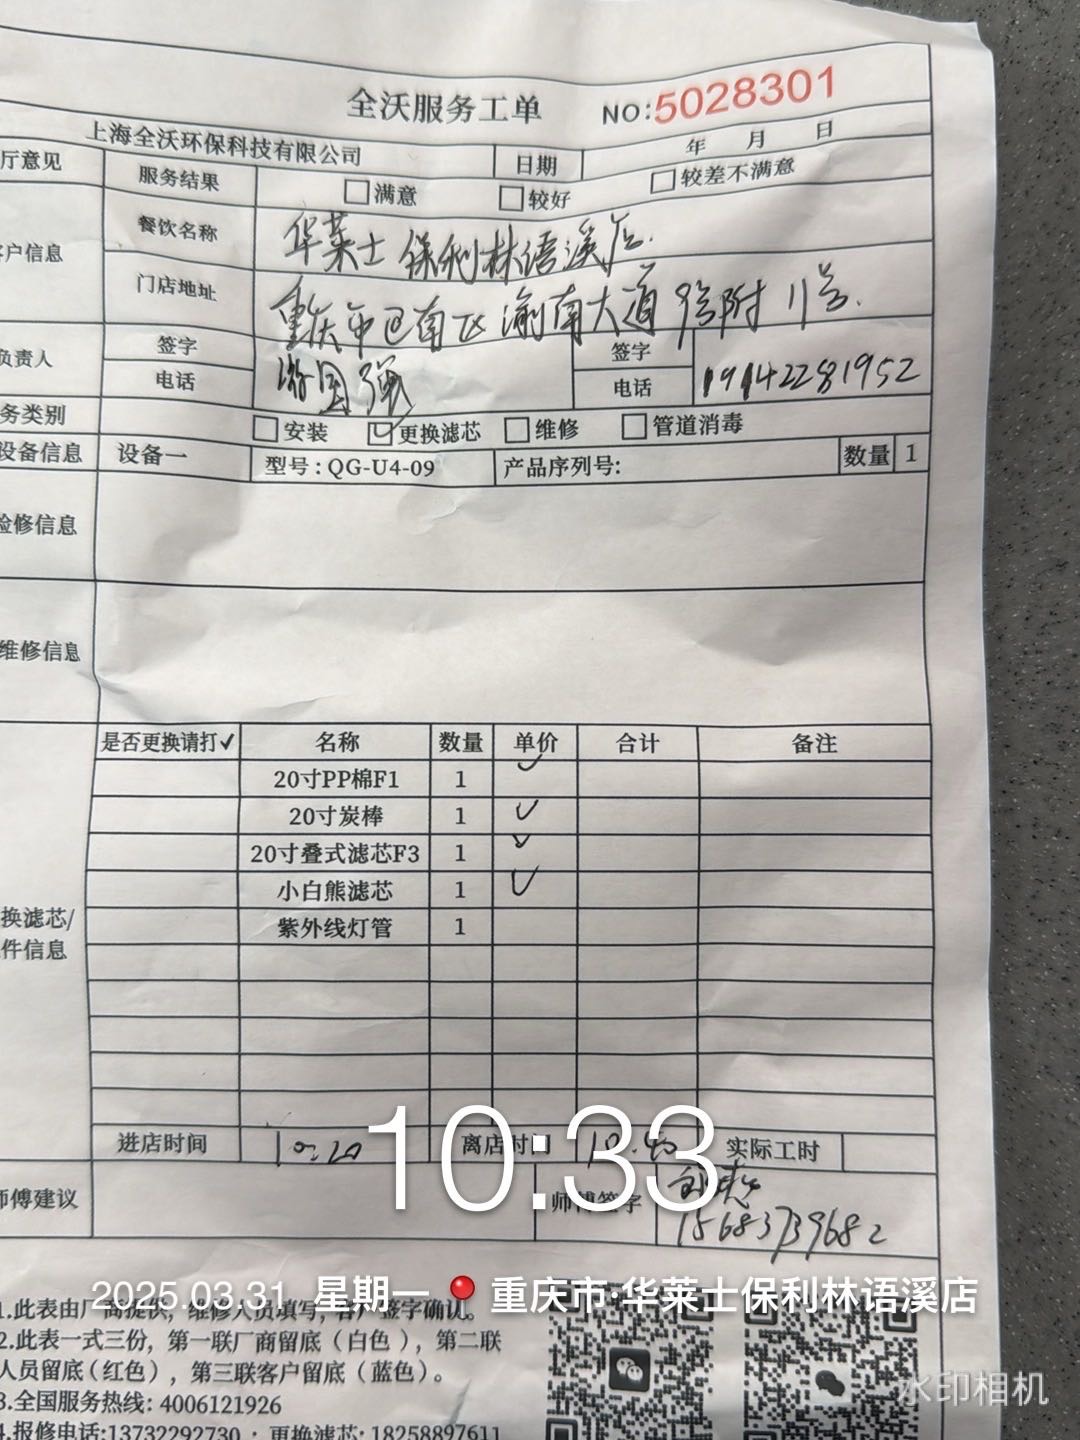 全沃服务工单 NO:5028301
上海全沃环保科技有限公司 日期 年 月 日
厅意见 服务结果 □满意 □较好 □较差不满意
客户信息 餐饮名称 华莱士保利林语溪店.
门店地址 重庆市巴南区渝南大道9号附11号.
负责人 签字 游国强 签字
电话 电话 19142281952
务类别 □安装 ☑更换滤芯 □维修 □管道消毒
设备信息 设备一 型号:QG-U4-09 产品序列号: 数量 1
检修信息
维修信息
是否更换请打✓ 名称 数量 单价 合计 备注
20寸PP棉F1 1 ✓
20寸炭棒 1 ✓
20寸叠式滤芯F3 1 ✓
小白熊滤芯 1 ✓
紫外线灯管 1
换滤芯/
件信息
进店时间 10:20 离店时间 10:40 实际工时
10:33
师傅建议 师傅签字
15683739682
2025.03.31 星期一 重庆市·华莱士保利林语溪店
1.此表由厂商提供,维修人员填写,客户签字确认。
2.此表一式三份,第一联厂商留底(白色),第二联
人员留底(红色),第三联客户留底(蓝色)。
3.全国服务热线:4006121926
4.报修电话:13732292730 · 更换滤芯:18258897611
水印相机